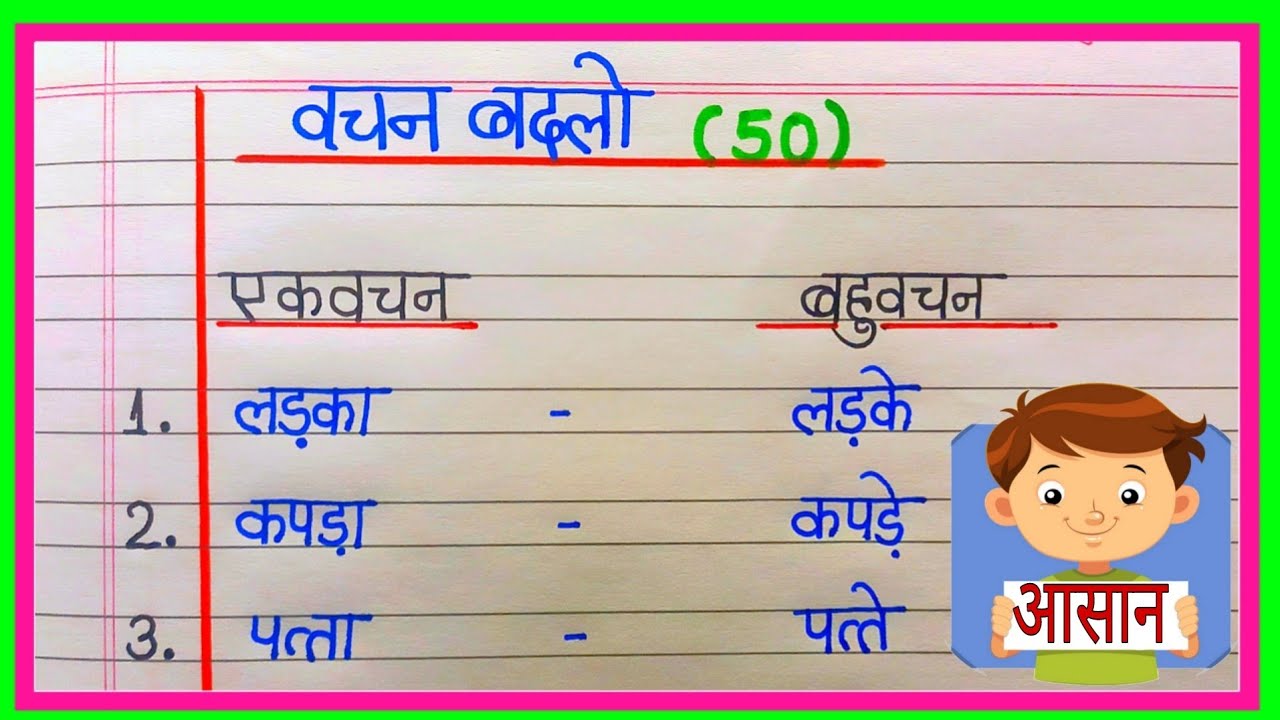 वचन बदलो (50)
एकवचन बहुवचन
1. लड़का - लड़के
2. कपड़ा - कपड़े
3. पत्ता - पत्ते
आसान